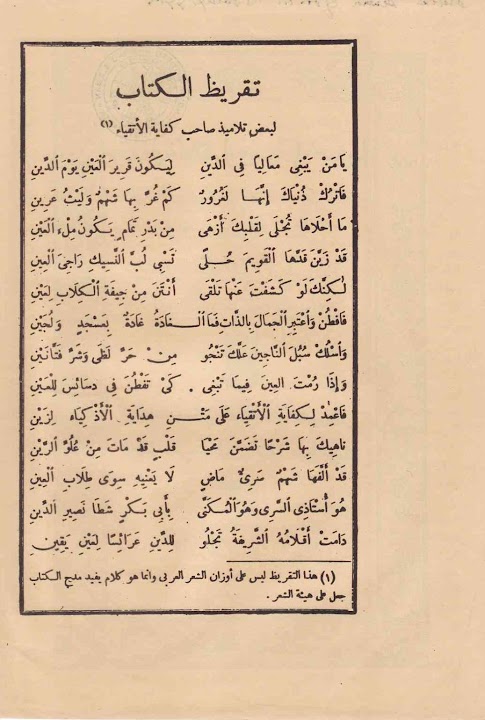 تقريظ الكتاب
لبعض تلاميذ صاحب كفاية الأتقياء (١)
يَامَنْ يَبْغِى مَعَالِيَا فِى الدِّينِ لِيَكُونَ قَرِيرَ الْعَيْنِ يَوْمَ الدِّينِ
فَاتْرُكْ دُنْيَاكَ إِنَّهَا لَغَرُورُ كَمْ غُرَّ بِهَا شَهْمٌ وَلَيْثُ عَرِينِ
مَا أَحْلَاهَا تُجْلَى لِقَلْبِكَ أَزْهَى مِنْ بَدْرِ تَمَامٍ يَكُونُ مِلْءَ الْعَيْنِ
قَدْ زَيَّنَ قَدَّهَا الْقَوِيمَ حُلًى تَسْبِى لُبَّ النَّسِيكِ رَاجِىَ الْعِينِ
لٰكِنَّكَ لَوْ كَشَفْتَ عَنْهَا تَلْقَى أَنْتَنَ مِنْ جِيفَةِ الْكِلَابِ لِعَيْنِ
فَافْطُنْ وَاعْتَبِرِ الْجَمَالَ بِالذَّاتِ فَمَا الْغَادَةُ غَادَةٌ بِعَسْجَدٍ وَلُجَيْنِ
وَاسْلُكْ سُبُلَ النَّاجِينَ عَلَّكَ تَنْجُو مِنْ حَرِّ لَظًى وَشَرِّ فَتَّانَيْنِ
وَإِذَا رُمْتَ الْعِينَ فِيمَا تَبْغِى . كَىْ تَفْطُنَ فِى دَسَائِسَ لِلْعَيْنِ
فَاعْمِدْ لِكِفَايَةِ الْأَتْقِيَاءِ عَلَى مَتْنِ هِدَايَةِ الْأَذْكِيَاءِ لِزَيْنِ
نَاهِيكَ بِهَا شَرْحًا تَضَمَّنَ مَحْيَا قَلْبٍ قَدْ مَاتَ مِنْ عُلُوِّ الرَّيْنِ
قَدْ أَلَّفَهَا شَهْمٌ سَرِىٌّ مَاضٍ لَا يَعْنِيهِ سِوَى طِلَابِ الْعِينِ
هُوَ أُسْتَاذِى السَّرِى وَهُوَ الْمُكَنَّى بِأَبِى بَكْرٍ شَطَا نَصِيرِ الدِّينِ
دَامَتْ أَقْلَامُهُ الشَّرِيفَةُ تَجْلُو لِلدِّينِ عَرَائِسًا لِعَيْنِ يَقِينِ
(١) هذا التقريظ ليس على أوزان الشعر العربى وانما هو كلام يفيد مديح الكتاب
جعل على هيئة الشعر .